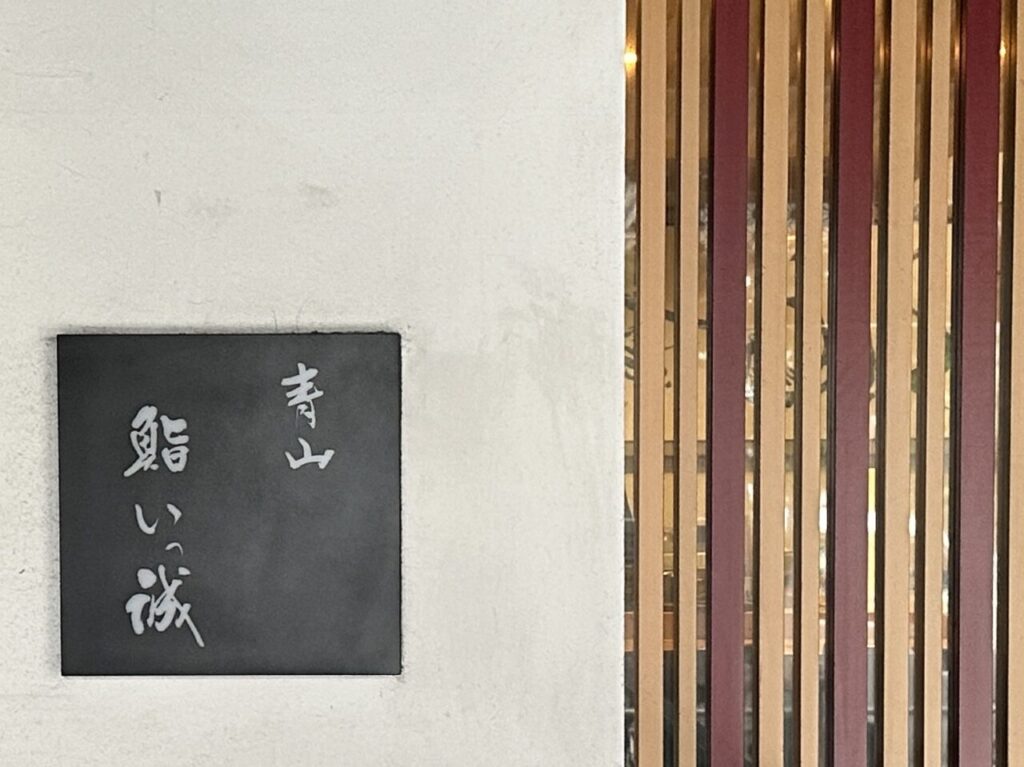 青山
鮨いっ誠